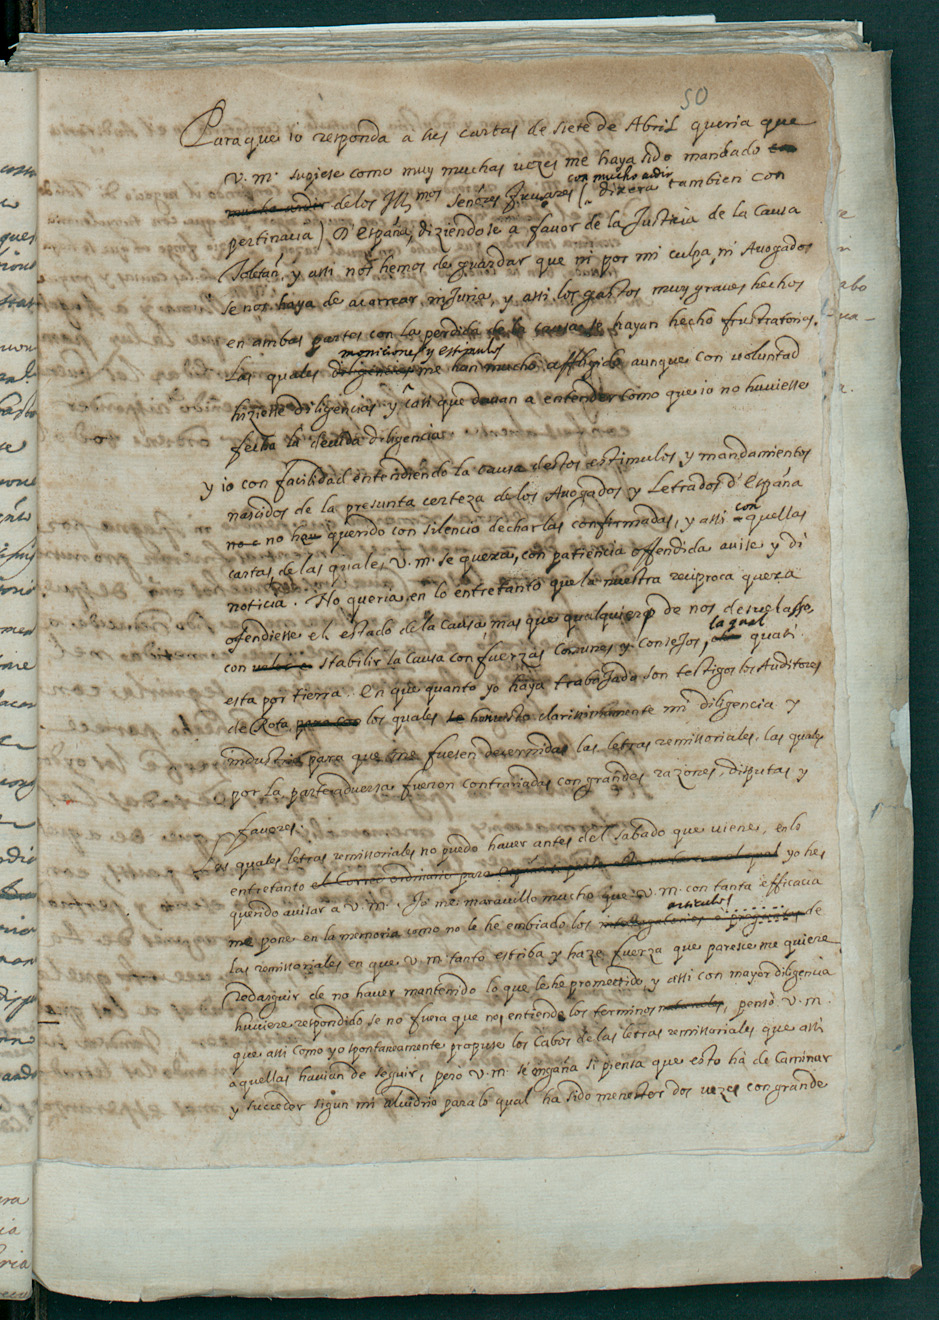 50
Paraque io responda a sus cartas de siete de Abril queria que
v. m. supiese como muy muchas vezes me haya sido mandado con
con mucho ardir
mucho ardir de los Illmos Señores (dixera tambien con
pertinacia) d'España, diziendose a favor de la Justicia de la Causa
Toletan, y assi nos hemos de guardar que ni por mi culpa, ni Avogados
se nos haya de acarrear injuria, y assi los gastos muy graves hechos
en ambas partes con la perdida de la causa se hayan hecho frustratorios.
moniciones y estimulos
Las quales diligencias me han mucho affligido aunque con voluntad
hiziesse diligencias y casi que davan a entender como que io no huviesse
fecho la devida diligencia
y io con facilidad entendiendo la causa destos estimulos, y mandamientos
nascidos de la presunta certeza de los Avogados y Letrados d'España
con
no no han querido con silencio dechar las confirmadas, y assi quellas
cartas de las quales v. m. se quexa, con patientia offendida avise y di
noticia. No queria en lo entretanto que la nuestra reciproca quexa
ofendiesse el estado de la causa, mas que qualquiera de nos desvelasse
la qual
con stabilir la Causa con fuerzas Comunes y Consejos, quasi
esta por tierra. En que quanto yo haya trabajado son testigos los Auditores
de Rota los quales clarissimamente mi diligencia y
industria para que me fuesen decernidas las letras remissoriales, las quales
por la parte adversa fueron contrariadas con grandes razones, disputas y
favores.
Las quales letras remissoriales no puedo haver antes del sabado que viene, en lo
entretanto el Correo ordinario para yo hes
querido avisar a v. m. Io me maravillo mucho que v. m. con tanta efficacia
articulos
me pone en la memoria como no le he embiado los de
las remissoriales en que v. m. tanto estriba y haze fuerza que paresce me quiere
redarguir de no haver mantenido lo que le he promettido, y assi con mayor diligencia
huviere respondido se no fuera que no entiende los terminos, pensò v. m.
que assi como yo spontaneamente propuse los Cabos de las letras remissoriales que assi
aquellas havian de seguir, pero v. m. se engaña si piensa que esto ha de Caminar
y succeder sigun mi alvidrio para lo qual ha sido menester dos vezes con grande